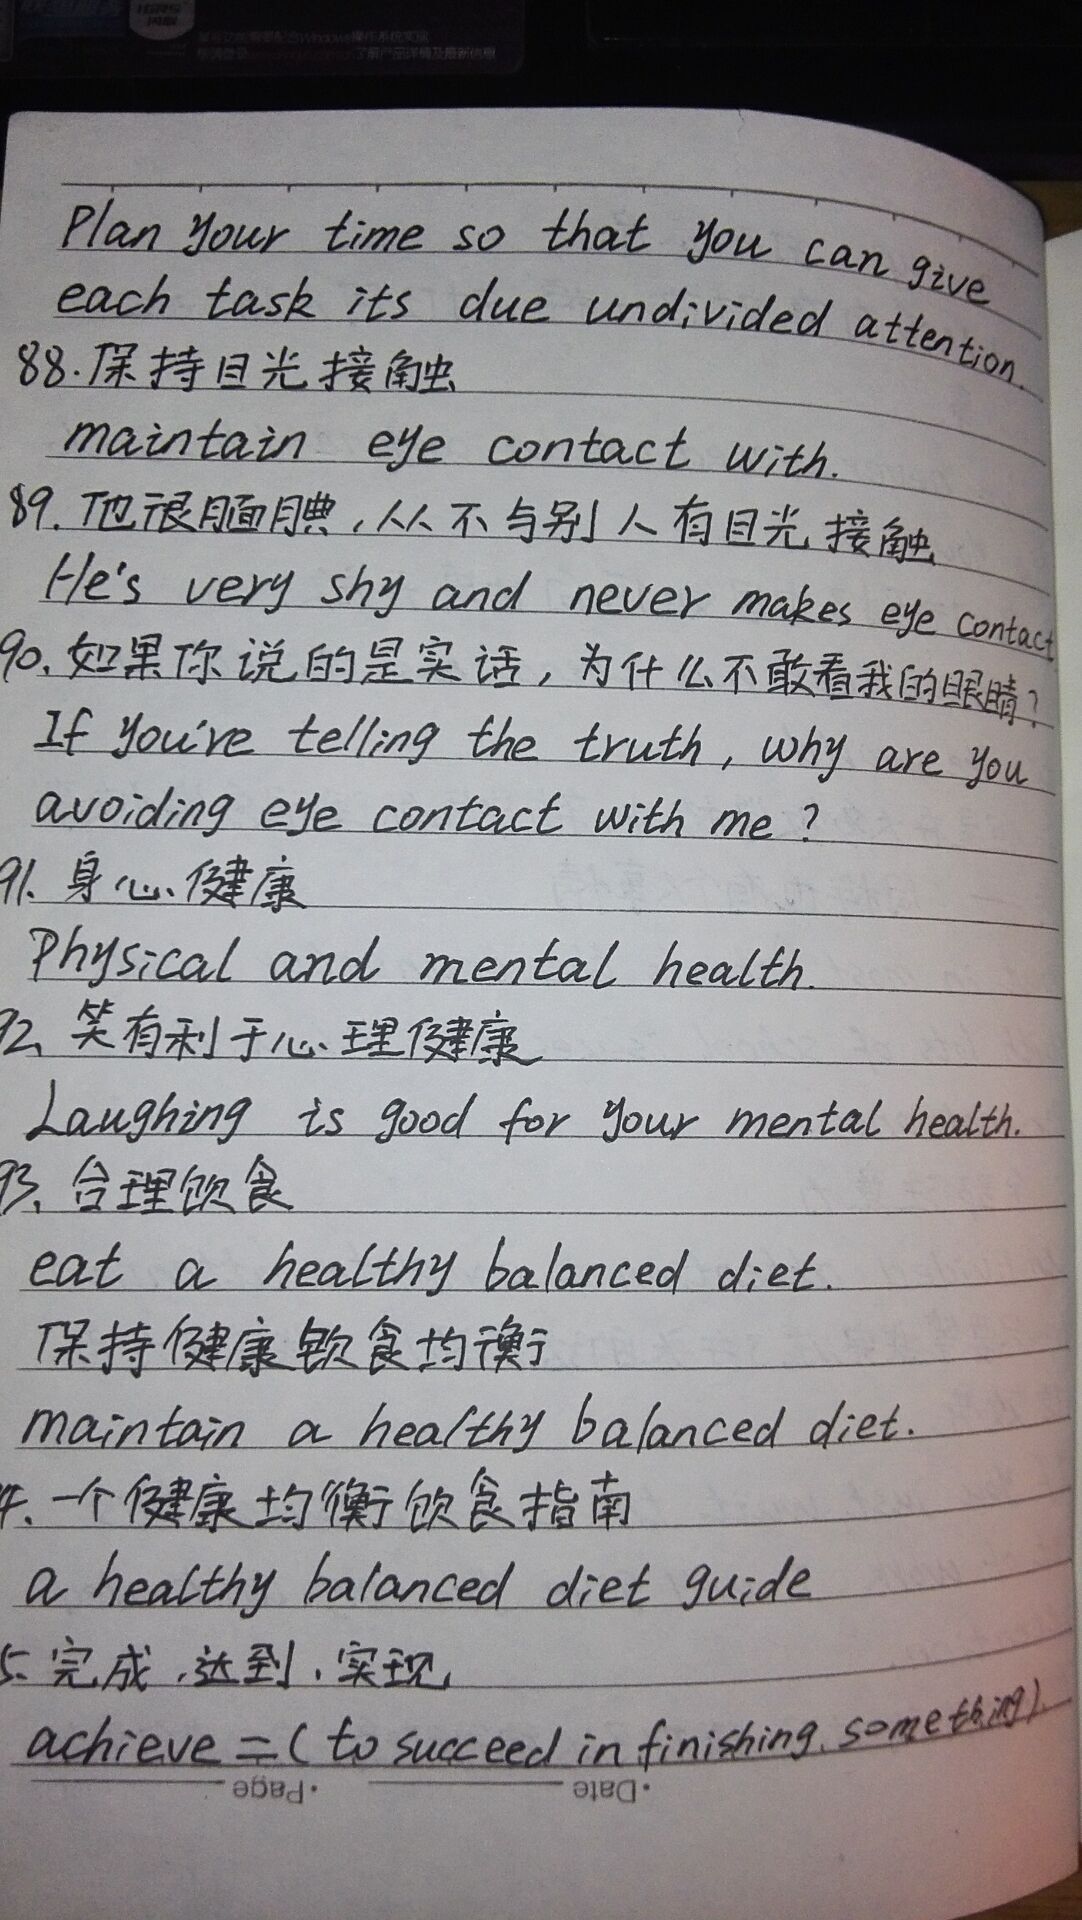 操作系统实现
了解产品详情及最新信息
Plan your time so that you can give
each task its due undivided attention.
88.保持目光接触
maintain eye contact with.
89.他很腼腆,从不与别人有目光接触
He's very shy and never makes eye contact
90.如果你说的是实话,为什么不敢看我的眼睛?
If you're telling the truth, why are you
avoiding eye contact with me?
91.身心健康
Physical and mental health.
92、笑有利于心理健康
Laughing is good for your mental health.
93、合理饮食
eat a healthy balanced diet.
保持健康饮食均衡
maintain a healthy balanced diet.
4、一个健康均衡饮食指南
a healthy balanced diet guide
5、完成,达到,实现
achieve = (to succeed in finishing something).
Page. Date.